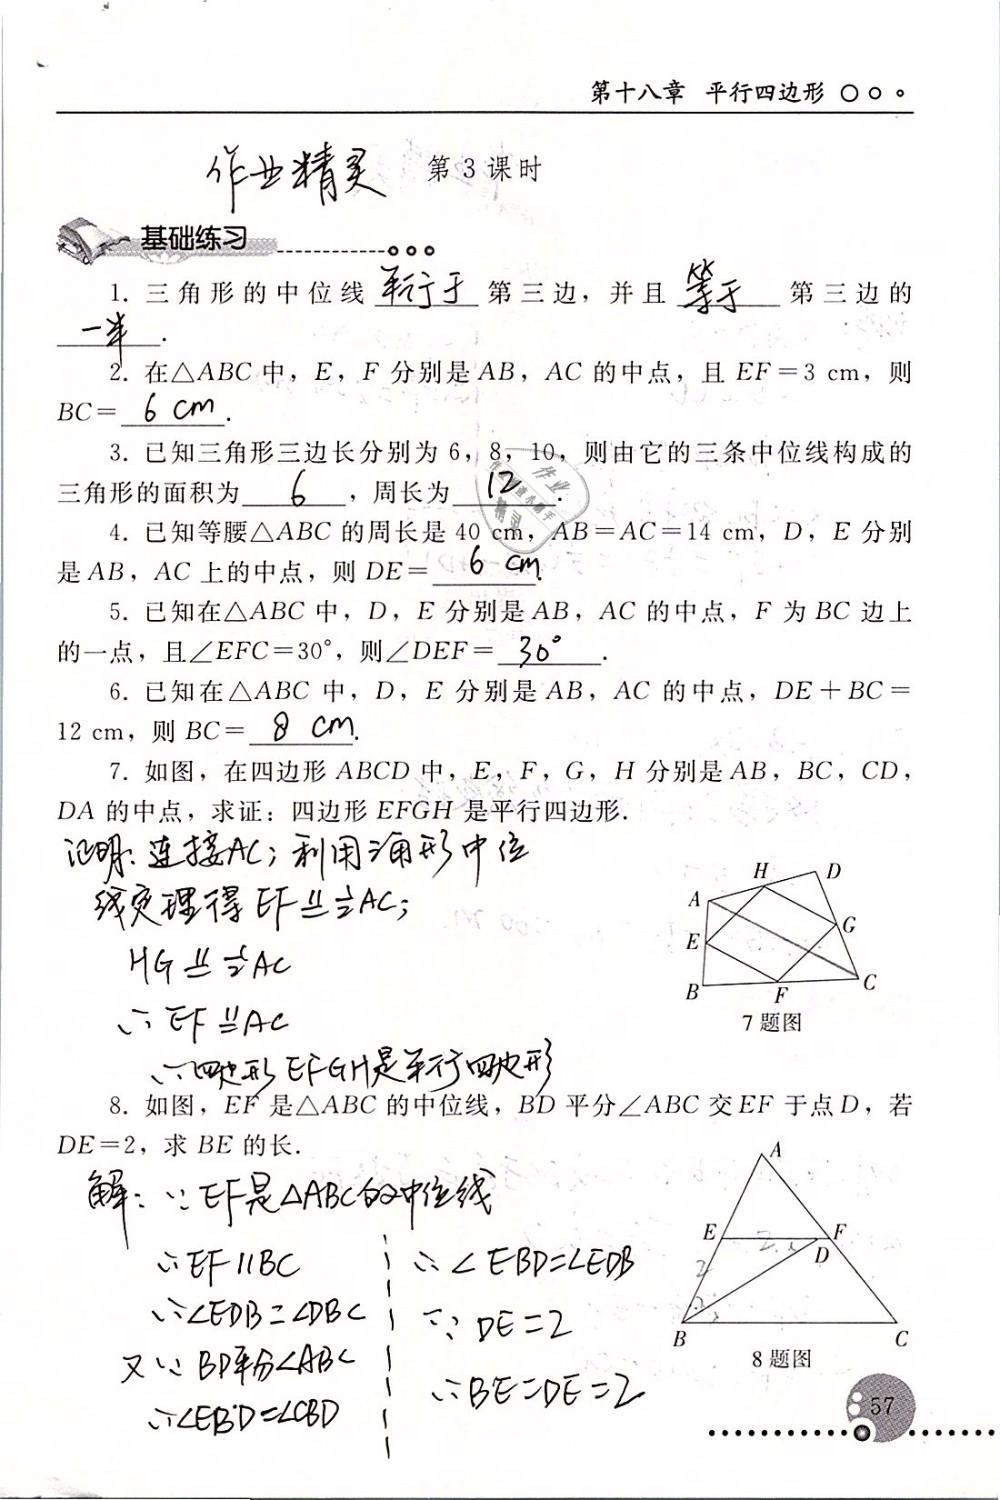 第十八章 平行四边形
作业精灵 第3课时
基础练习
1. 三角形的中位线 平行于 第三边，并且 等于 第三边的
一半.
2. 在△ABC中，E，F 分别是AB，AC 的中点，且 EF=3 cm，则
BC= 6 cm.
3. 已知三角形三边长分别为 6，8，10，则由它的三条中位线构成的
三角形的面积为 6 ，周长为 12 .
4. 已知等腰△ABC 的周长是 40 cm，AB=AC=14 cm，D，E 分别
是AB，AC 上的中点，则 DE= 6 cm.
5. 已知在△ABC 中，D，E 分别是 AB，AC 的中点，F 为 BC 边上
的一点，且∠EFC=30°，则∠DEF= 30° .
6. 已知在△ABC 中，D，E 分别是 AB，AC 的中点，DE+BC=
12 cm，则 BC= 8 cm.
7. 如图，在四边形 ABCD 中，E，F，G，H 分别是 AB，BC，CD，
DA 的中点，求证：四边形 EFGH 是平行四边形.
证明：连接AC；利用三角形中位
线定理得 EF ∥= ½AC；
HG ∥= ½AC
∴ EF ∥= AC
∴四边形 EFGH是平行四边形
A
H
D
E
G
B
F
C
7题图
8. 如图，EF 是△ABC 的中位线，BD 平分∠ABC 交 EF 于点 D，若
DE=2，求 BE 的长.
解：∵ EF是△ABC的中位线
∴EF∥BC
∴∠EDB=∠DBC
又∵ BD平分∠ABC
∴∠EBD=∠CBD
∴∠EBD=∠EDB
∵ DE=2
∴BE=DE=2
A
E
F
D
2
B
C
8题图
57